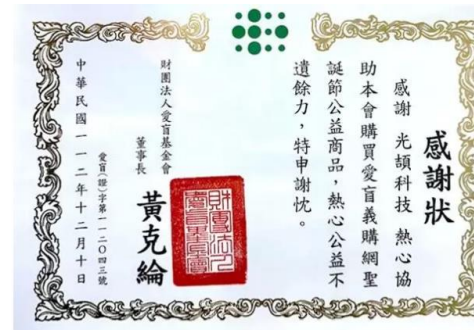 感謝狀
感謝 光頡科技 熱心協
助本會購買愛盲義購網聖
誕節公益商品，熱心公益不
遺餘力，特申謝忱。
財團法人愛盲基金會
董事長 黃克綸
愛盲(證)字第一一二〇四三號
中華民國一一二年十二月十日